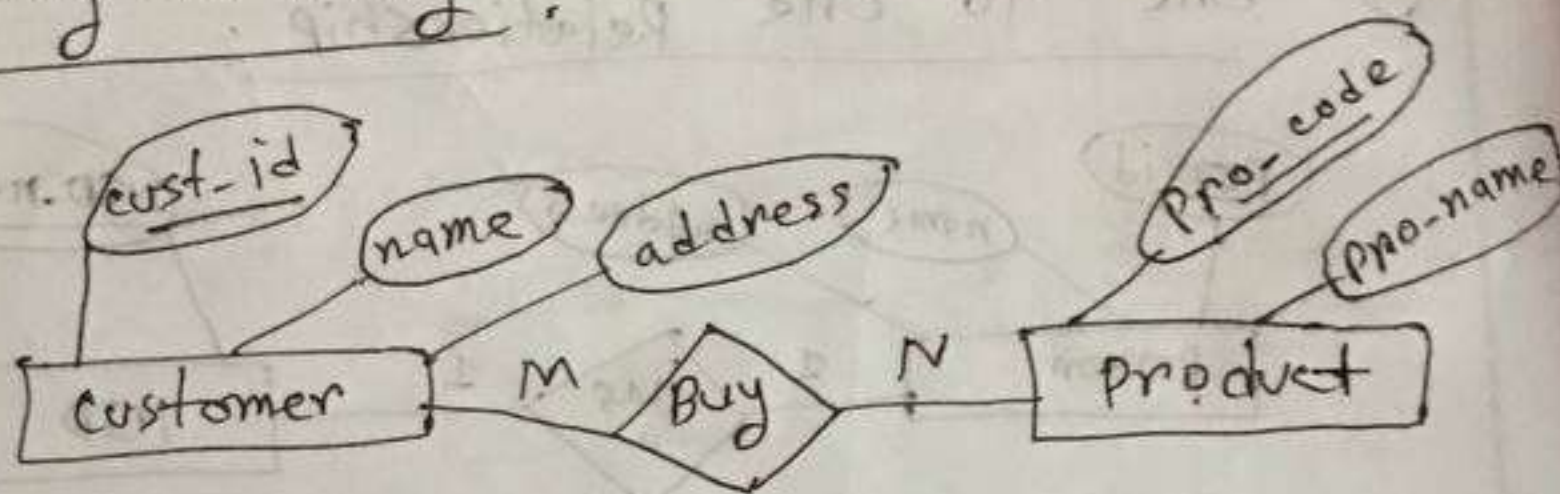 cust_id
name
address
pro_code
pro_name
customer
M
Buy
N
product